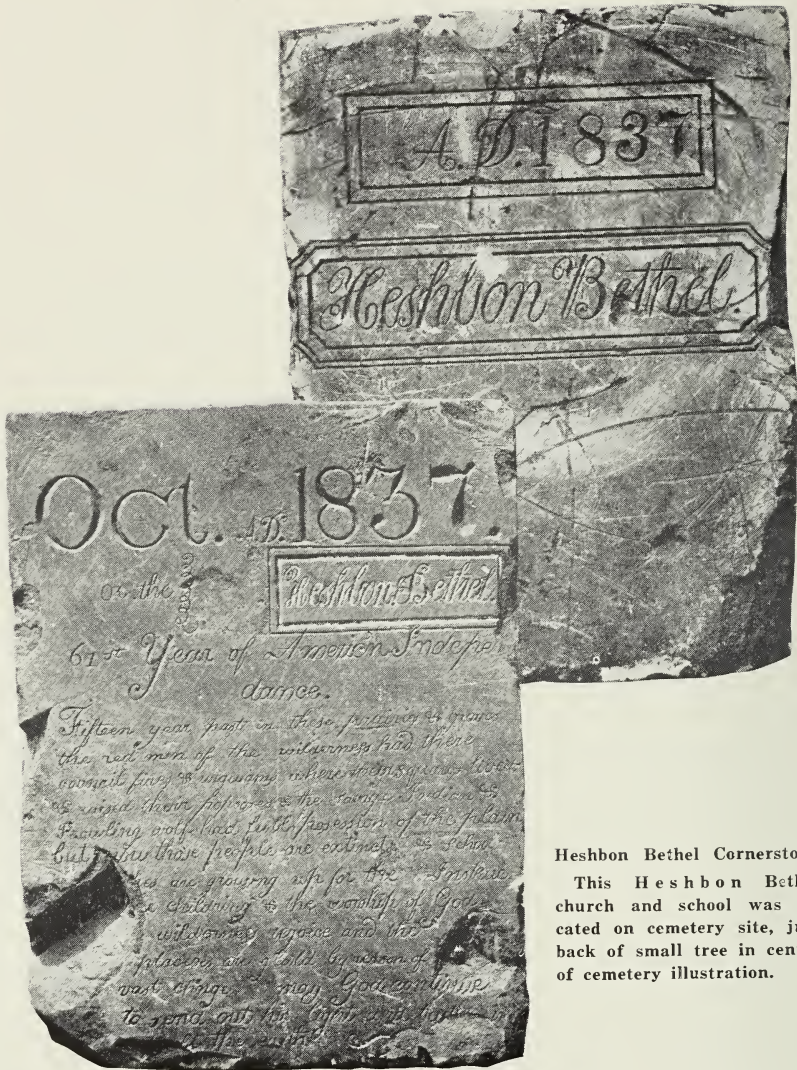 A.D. 1837
Heshbon Bethel.
Oct. A.D. 1837.
or the
Heshbon Bethel
61st Year of American Indepen
dance.
Fifteen year past in these &
the red men of the wilderness had there
council fires & wigwams where
& raised their & the Indian &
Prowling wolf had full possesion of the plain
but now those people are extinct &
are growing up for the
& the worship of God
wilderness and the
placies are by reason of
vast may God continue
to send out his light and
the earth
Heshbon Bethel Cornersto
This Heshbon Beth
church and school was
cated on cemetery site, ju
back of small tree in cen
of cemetery illustration.